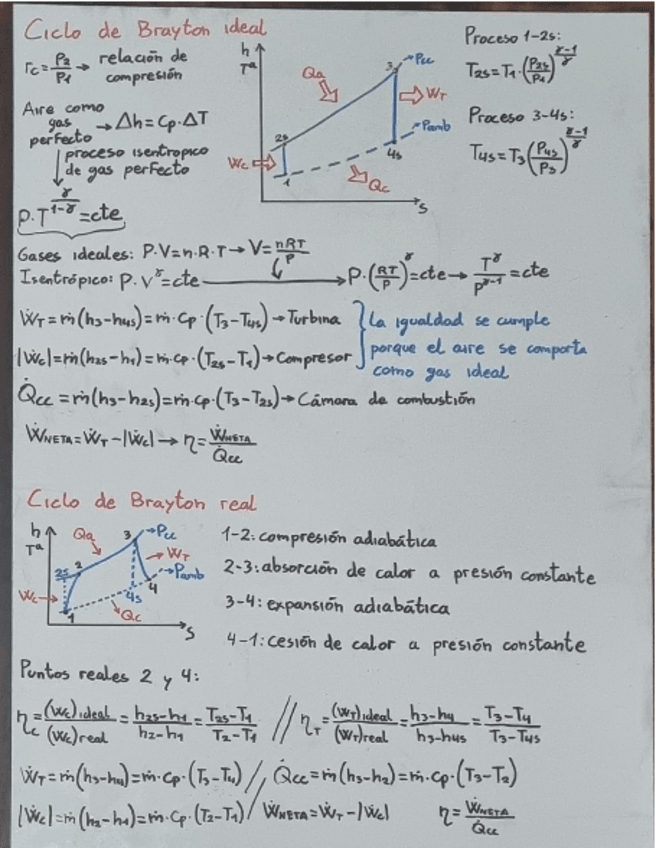 Ciclo de Brayton ideal
rc = P2/P1 → relación de compresión
Aire como gas perfecto → Δh = Cp·ΔT
proceso isentropico de gas perfecto
P·T^(γ/(1-γ)) = cte
h
Tª
Qa
3
Pcc
WT
2s
Pamb
Wc
1
4s
Qc
s
Proceso 1-2s:
T2s = T1·(P2s/P1)^((γ-1)/γ)
Proceso 3-4s:
T4s = T3(P4s/P3)^((γ-1)/γ)
Gases ideales: P·V = n·R·T → V = nRT/P
Isentrópico: P·V^γ = cte → P·(RT/P)^γ = cte → T^γ/P^(γ-1) = cte
ẆT = ṁ(h3-h4s) = ṁ·Cp·(T3-T4s) → Turbina
|Ẇc| = ṁ(h2s-h1) = ṁ·Cp·(T2s-T1) → Compresor
La igualdad se cumple
porque el aire se comporta
como gas ideal
Q̇cc = ṁ(h3-h2s) = ṁ·cp·(T3-T2s) → Cámara de combustión
ẆNETA = ẆT - |Ẇc| → η = ẆNETA/Q̇cc
Ciclo de Brayton real
h
Tª
Qa
3
Pcc
WT
2s
2
Pamb
4
4s
Wc
1
Qc
s
1-2: compresión adiabática
2-3: absorción de calor a presión constante
3-4: expansión adiabática
4-1: cesión de calor a presión constante
Puntos reales 2 y 4:
ηc = (Wc)ideal/(Wc)real = h2s-h1/h2-h1 = T2s-T1/T2-T1 // ηT = (WT)ideal/(WT)real = h3-h4/h3-h4s = T3-T4/T3-T4s
ẆT = ṁ(h3-h4) = ṁ·Cp·(T3-T4) // Q̇cc = ṁ(h3-h2) = ṁ·Cp·(T3-T2)
|Ẇc| = ṁ(h2-h1) = ṁ·Cp·(T2-T1) // ẆNETA = ẆT - |Ẇc| η = ẆNETA/Q̇cc